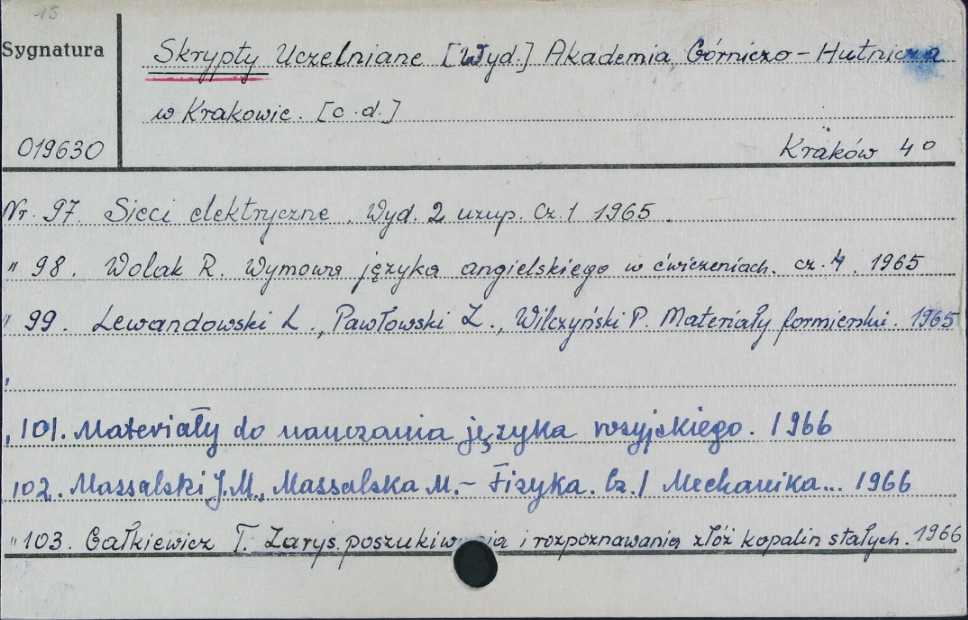 15
Sygnatura
Skrypty Uczelniane [Wyd.] Akademia Górniczo-Hutnicza
w Krakowie. [c.d.]
019630
Kraków 4°
Nr. 97. Sieci elektryczne. Wyd. 2 uzup. Cz. 1 1965.
" 98. Wolak R. Wymowa języka angielskiego w ćwiczeniach. cz. 4. 1965
" 99. Lewandowski L., Pawłowski Z., Wilczyński P. Materiały formierskie. 1965
"
" 101. Materiały do nauczania języka rosyjskiego. 1966
102. Massalski J.M., Massalska M. - Fizyka. Cz. 1 Mechanika... 1966
" 103. Gałkiewicz T. Zarys poszukiwania i rozpoznawania złóż kopalin stałych. 1966